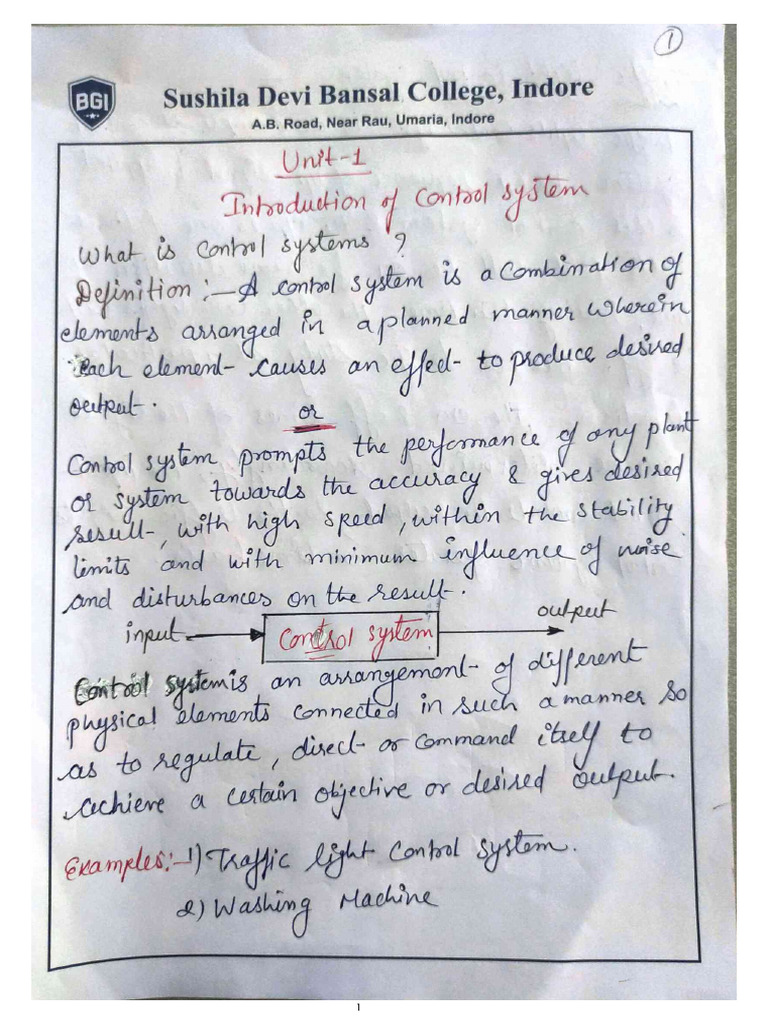 1
BGI
Sushila Devi Bansal College, Indore
A.B. Road, Near Rau, Umaria, Indore
Unit-1
Introduction of Control system
What is control systems ?
Definition :- A control system is a Combination of
elements arranged in a planned manner wherein
each element causes an effect to produce desired
output.
or
Control system prompts the performance of any plant
or system towards the accuracy & gives desired
result, with high speed, within the stability
limits and with minimum influence of noise
and disturbances on the result.
input
Control system
output
Control system is an arrangement of different
physical elements connected in such a manner so
as to regulate, direct or command itself to
achieve a certain objective or desired output.
Examples:- 1) Traffic light Control system.
2) Washing Machine
1